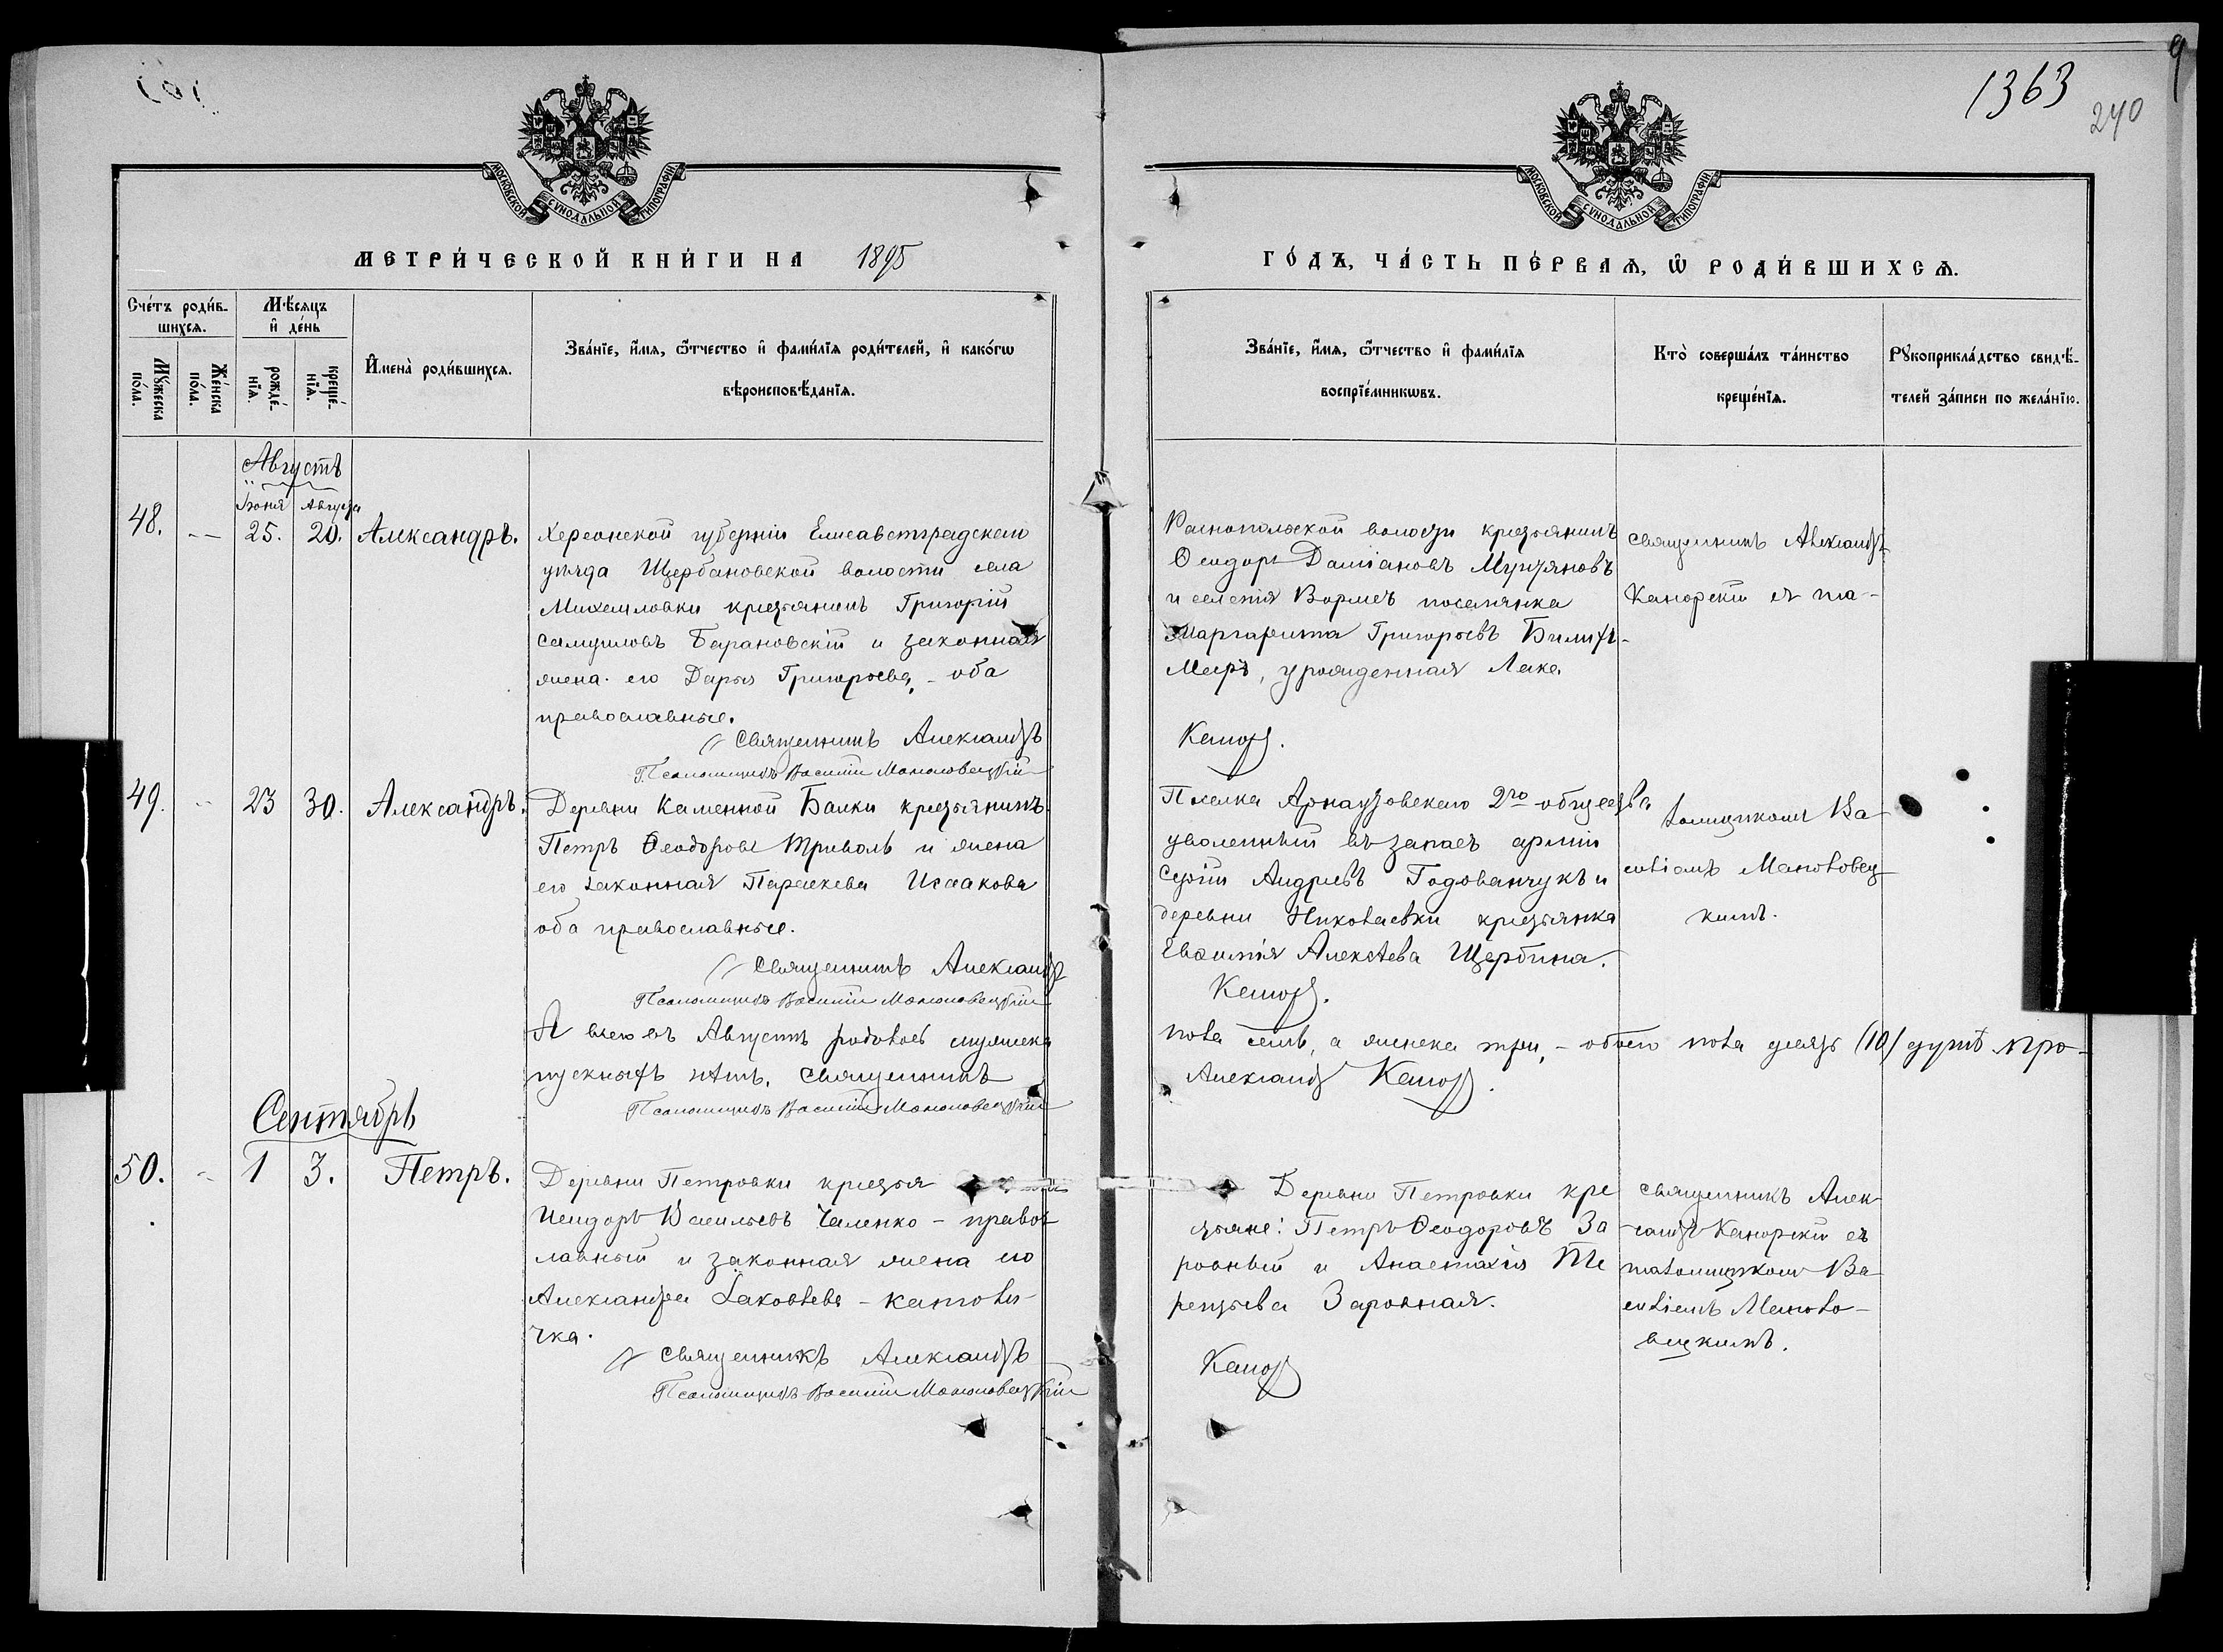 1363
240
9
МОСКОВСКОЙ СУНОДАЛЬНОЙ ТИПОГРАФІИ
МОСКОВСКОЙ СУНОДАЛЬНОЙ ТИПОГРАФІИ
МЕТРИ́ЧЕСКОЙ КНИ́ГИ НА 1895
ГО́ДЪ, ЧА́СТЬ ПЕ́РВАѦ, Ѡ҆ РОДИ́ВШИХСѦ.
Сче́тъ роди́в-
шихсѧ.
Мѣ́сѧцъ
и҆ де́нь
Мꙋ́жеска
по́ла.
Же́нска
по́ла.
рожде́-
нїѧ.
креще́-
нїѧ.
И҆мена̀ роди́вшихсѧ.
Зва́нїе, и҆́мѧ, ѻ҆́тчество и҆ фами́лїѧ роди́телей, и҆ како́гѡ
вѣроисповѣ́данїѧ.
Зва́нїе, и҆́мѧ, ѻ҆́тчество и҆ фами́лїѧ
воспрїе́мникѡвъ.
Кто̀ соверша́лъ та́инство
креще́нїѧ.
Рꙋкоприкла́дство свидѣ́-
телей за́писи по жела́нїю.
Августъ
Іюня Августа
48. — 25. 20. Александръ.
Херсонской губерніи Елисаветградскаго
уѣзда Щербановской волости села
Михайловки крестьянинъ Григорій
Самуиловъ Барановскій и законная
жена его Дарья Григорьева, - оба
православные.
Священникъ Александръ
Псаломщикъ Василій
Раснопольской волости крестьянинъ
Ѳеодоръ Даміановъ Мунтяновъ
и селенія Вормсъ поселянка
Маргарита Григорьевъ
Мееръ, урожденная Лака.
Священникъ Александръ
Канорскій съ пса-
49. - 23 30. Александръ.
Деревни Каменной Балки крестьянинъ
Петръ Ѳеодоровъ Триволь и жена
его законная Параскева Исаакова
оба православные.
Священникъ Александръ
Псаломщикъ Василій
Поселка Арнаутовскаго 2го общества
уволенный въ запасъ арміи
Сергій Андреевъ Годованчукъ и
деревни Николаевки крестьянка
Евѳимія Алексѣева Щербина.
ломщикомъ Ва-
силіемъ
кимъ.
А всего въ Августѣ родилось мужеска
пола семь, а женска три, - обоего пола десять (10) душъ. Про-
пускныхъ нѣтъ. Священникъ
Александръ
Псаломщикъ Василій
Сентябрь
50. - 1 3. Петръ.
Деревни Петровки крестья
Исидоръ Васильевъ Чаленко - правос
лавный и законная жена его
Александра Іаковлева - католи-
чка.
Священникъ Александръ
Псаломщикъ Василій
Деревни Петровки кре
стьяне: Петръ Ѳеодоровъ За
ровный и Анастасія Те
рентьева Заровная.
Священникъ Алек-
сандръ Канорскій съ
псаломщикомъ Ва-
силіемъ
вицкимъ.